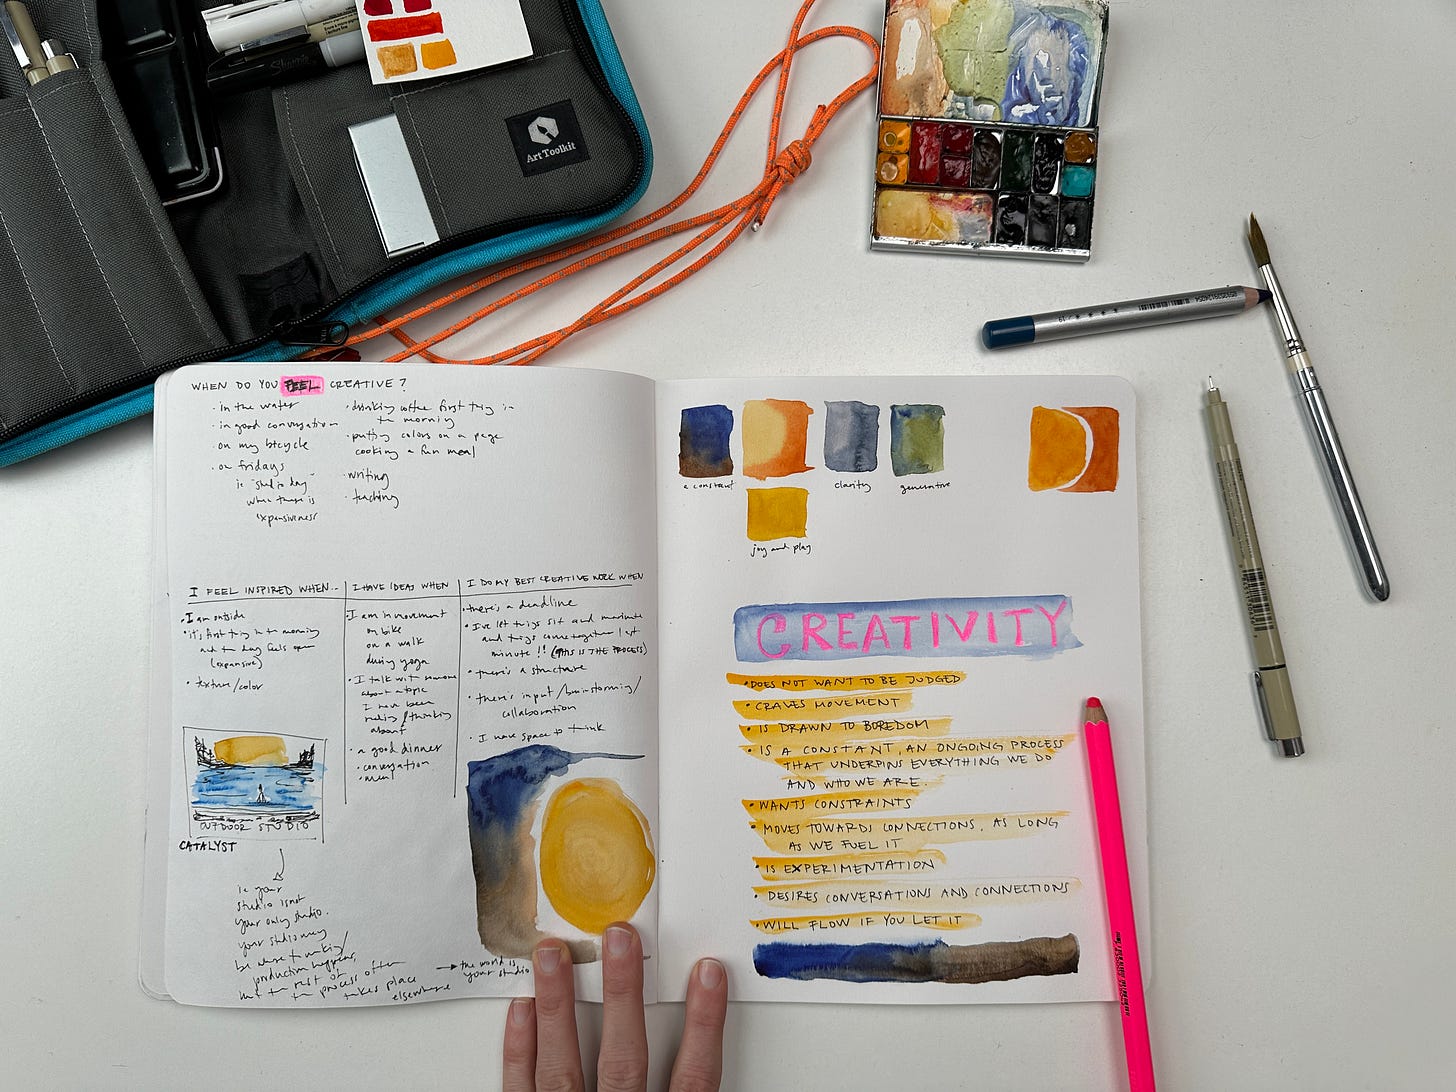 Sharpie
Art Toolkit
WHEN DO YOU FEEL CREATIVE?
· in the water
· in good conversation
· on my bicycle
· on fridays
ie studio day
when there is
expansiveness
· drinking coffee first thing in
the morning
· putting colors on a page
cooking a fun meal
· writing
· teaching
I FEEL INSPIRED WHEN...
· I am outside
· it's first thing in the morning
and the day feels open
(expansive)
· texture/color
OUTDOOR STUDIO
CATALYST
ie your
studio is not
your only studio.
your studio may
be where the making/
production happens,
but the rest of
the process often
takes place
elsewhere
→ the world is
your studio
I HAVE IDEAS WHEN
· I am in movement
on bike
on a walk
during yoga
· I talk with someone
about a topic
I have been
reading/thinking
about
· a good dinner
· conversation
I DO MY BEST CREATIVE WORK WHEN
· there's a deadline
· I've let things sit and marinate
and things come together last
minute!! (THIS IS THE PROCESS)
· there's a structure
· there's input/brainstorming/
collaboration
· I have space to think
a constant
clarity
generative
joy and play
CREATIVITY
· DOES NOT WANT TO BE JUDGED
· CRAVES MOVEMENT
· IS DRAWN TO BOREDOM
· IS A CONSTANT, AN ONGOING PROCESS
THAT UNDERPINS EVERYTHING WE DO
AND WHO WE ARE.
· WANTS CONSTRAINTS
· MOVES TOWARDS CONNECTIONS, AS LONG
AS WE FUEL IT
· IS EXPERIMENTATION
· DESIRES CONVERSATIONS AND CONNECTIONS
· WILL FLOW IF YOU LET IT